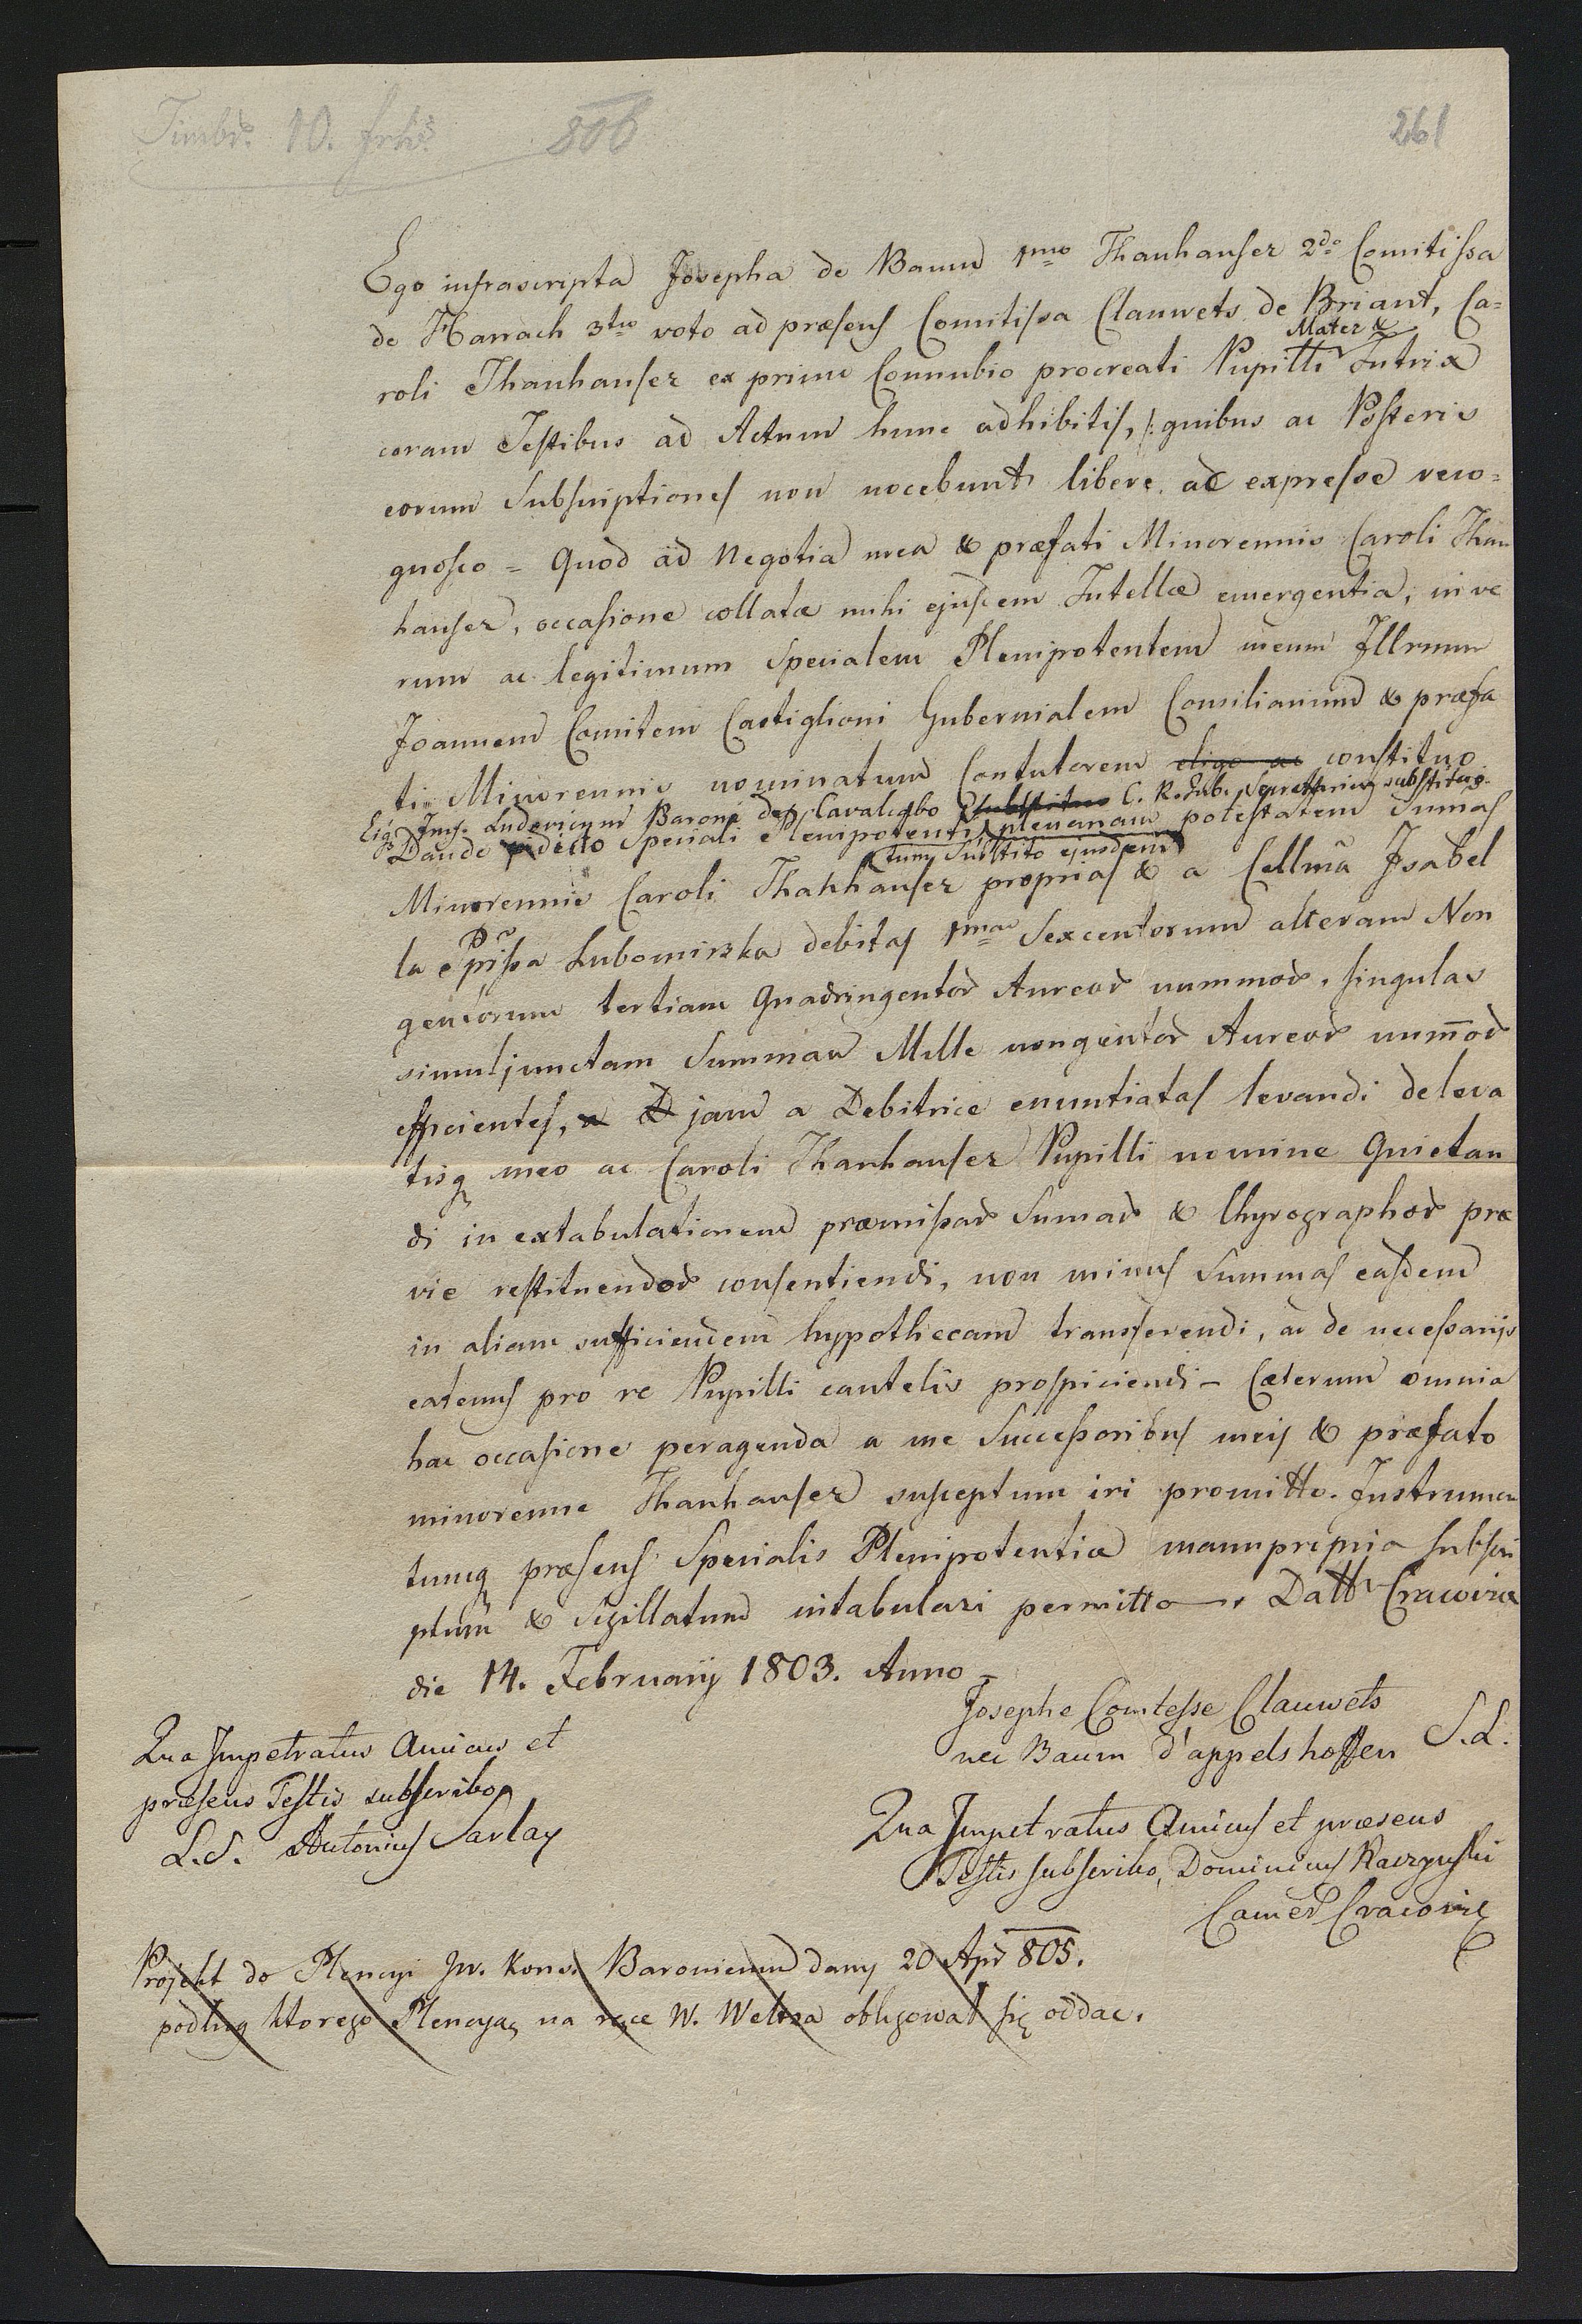 Timbr. 10. frkr. 806
261
Ego infrascripta Josepha de Baum 1mo Thanhauser 2do Comitissa
de Harrach 3tio voto ad præsens Comitissa Clauwets de Briant, Ca=
Mater &
roli Thanhauser ex primo Connubio procreati Pupilli Tutrix
coram Testibus ad Actum hunc adhibitis, /: quibus ac Posteris
eorum Subscriptiones non nocebunt libere ac expresse reco=
gnosco = Quod ad Negotia mea & præfati Minorennis Caroli Than
hauser, occasione collatæ mihi ejusdem Tutellæ emergentia, in ve
rum ac legitimum specialem Plenipotentem meum Illrmum
Joannem Comitem Castiglioni Gubernialem Consiliarium & præfa
ti Minorennis nominatum Contutorem eligo ac constituo
Eiq Ludovicum Baronē de Cavalcabo substituo C. R. Gub. Secretarium substituo.
Dando dicto Speciali Plenipotenti plenariam potestatem Sumas
tum Substito ejusdem
Minorennis Caroli Thanhauser proprias & a Cellma Isabel
la Ppissa Lubomirska debitas 1mam Sexcentorum alteram Non
gentorum tertiam Quadringentor Aureor nummor, singulas
simul junctam Summam Mille nongentor Aureor num̄or
efficientes, a jam a Debitrice enuntiatas levandi de leva
tisq meo ac Caroli Thanhauser Pupilli nomine Quietan
di in extabulationem præmissar Sumar & Chyrographor præ
vie restituendor consentiendi, non minus Summas easdem
in aliam sufficiendem hypothecam transferendi, ac de necessarijs
eatenus pro re Pupilli cautelis prospiciendi – Cæterum omnia
hac occasione peragenda a me Successoribus meis & præfato
minorenne Thanhauser susceptum iri promitto. Instrumen
tumq præsens Specialis Plenipotentiæ manupropria subscri
ptum & Sigillatum intabulari permitto –. Datt Cracoviæ
die 14. Februarij 1803. Anno –
Josephe Comtesse Clauwets
neé Baum d'appelshoffen S. L.
Qua Impetratus Amicus et
præsens Testis subscribo
L. S. Antonius Sarlay
Qua Impetratus Amicus et præsens
Testis subscribo, Dominicus Raczynski
Camer Cracoviæ
Projekt do Plencyi JW. Kons. Baroniemu dany 20 Apr 805.
podług ktorego Plencyą na ręce W. Weltza obligował się oddac.